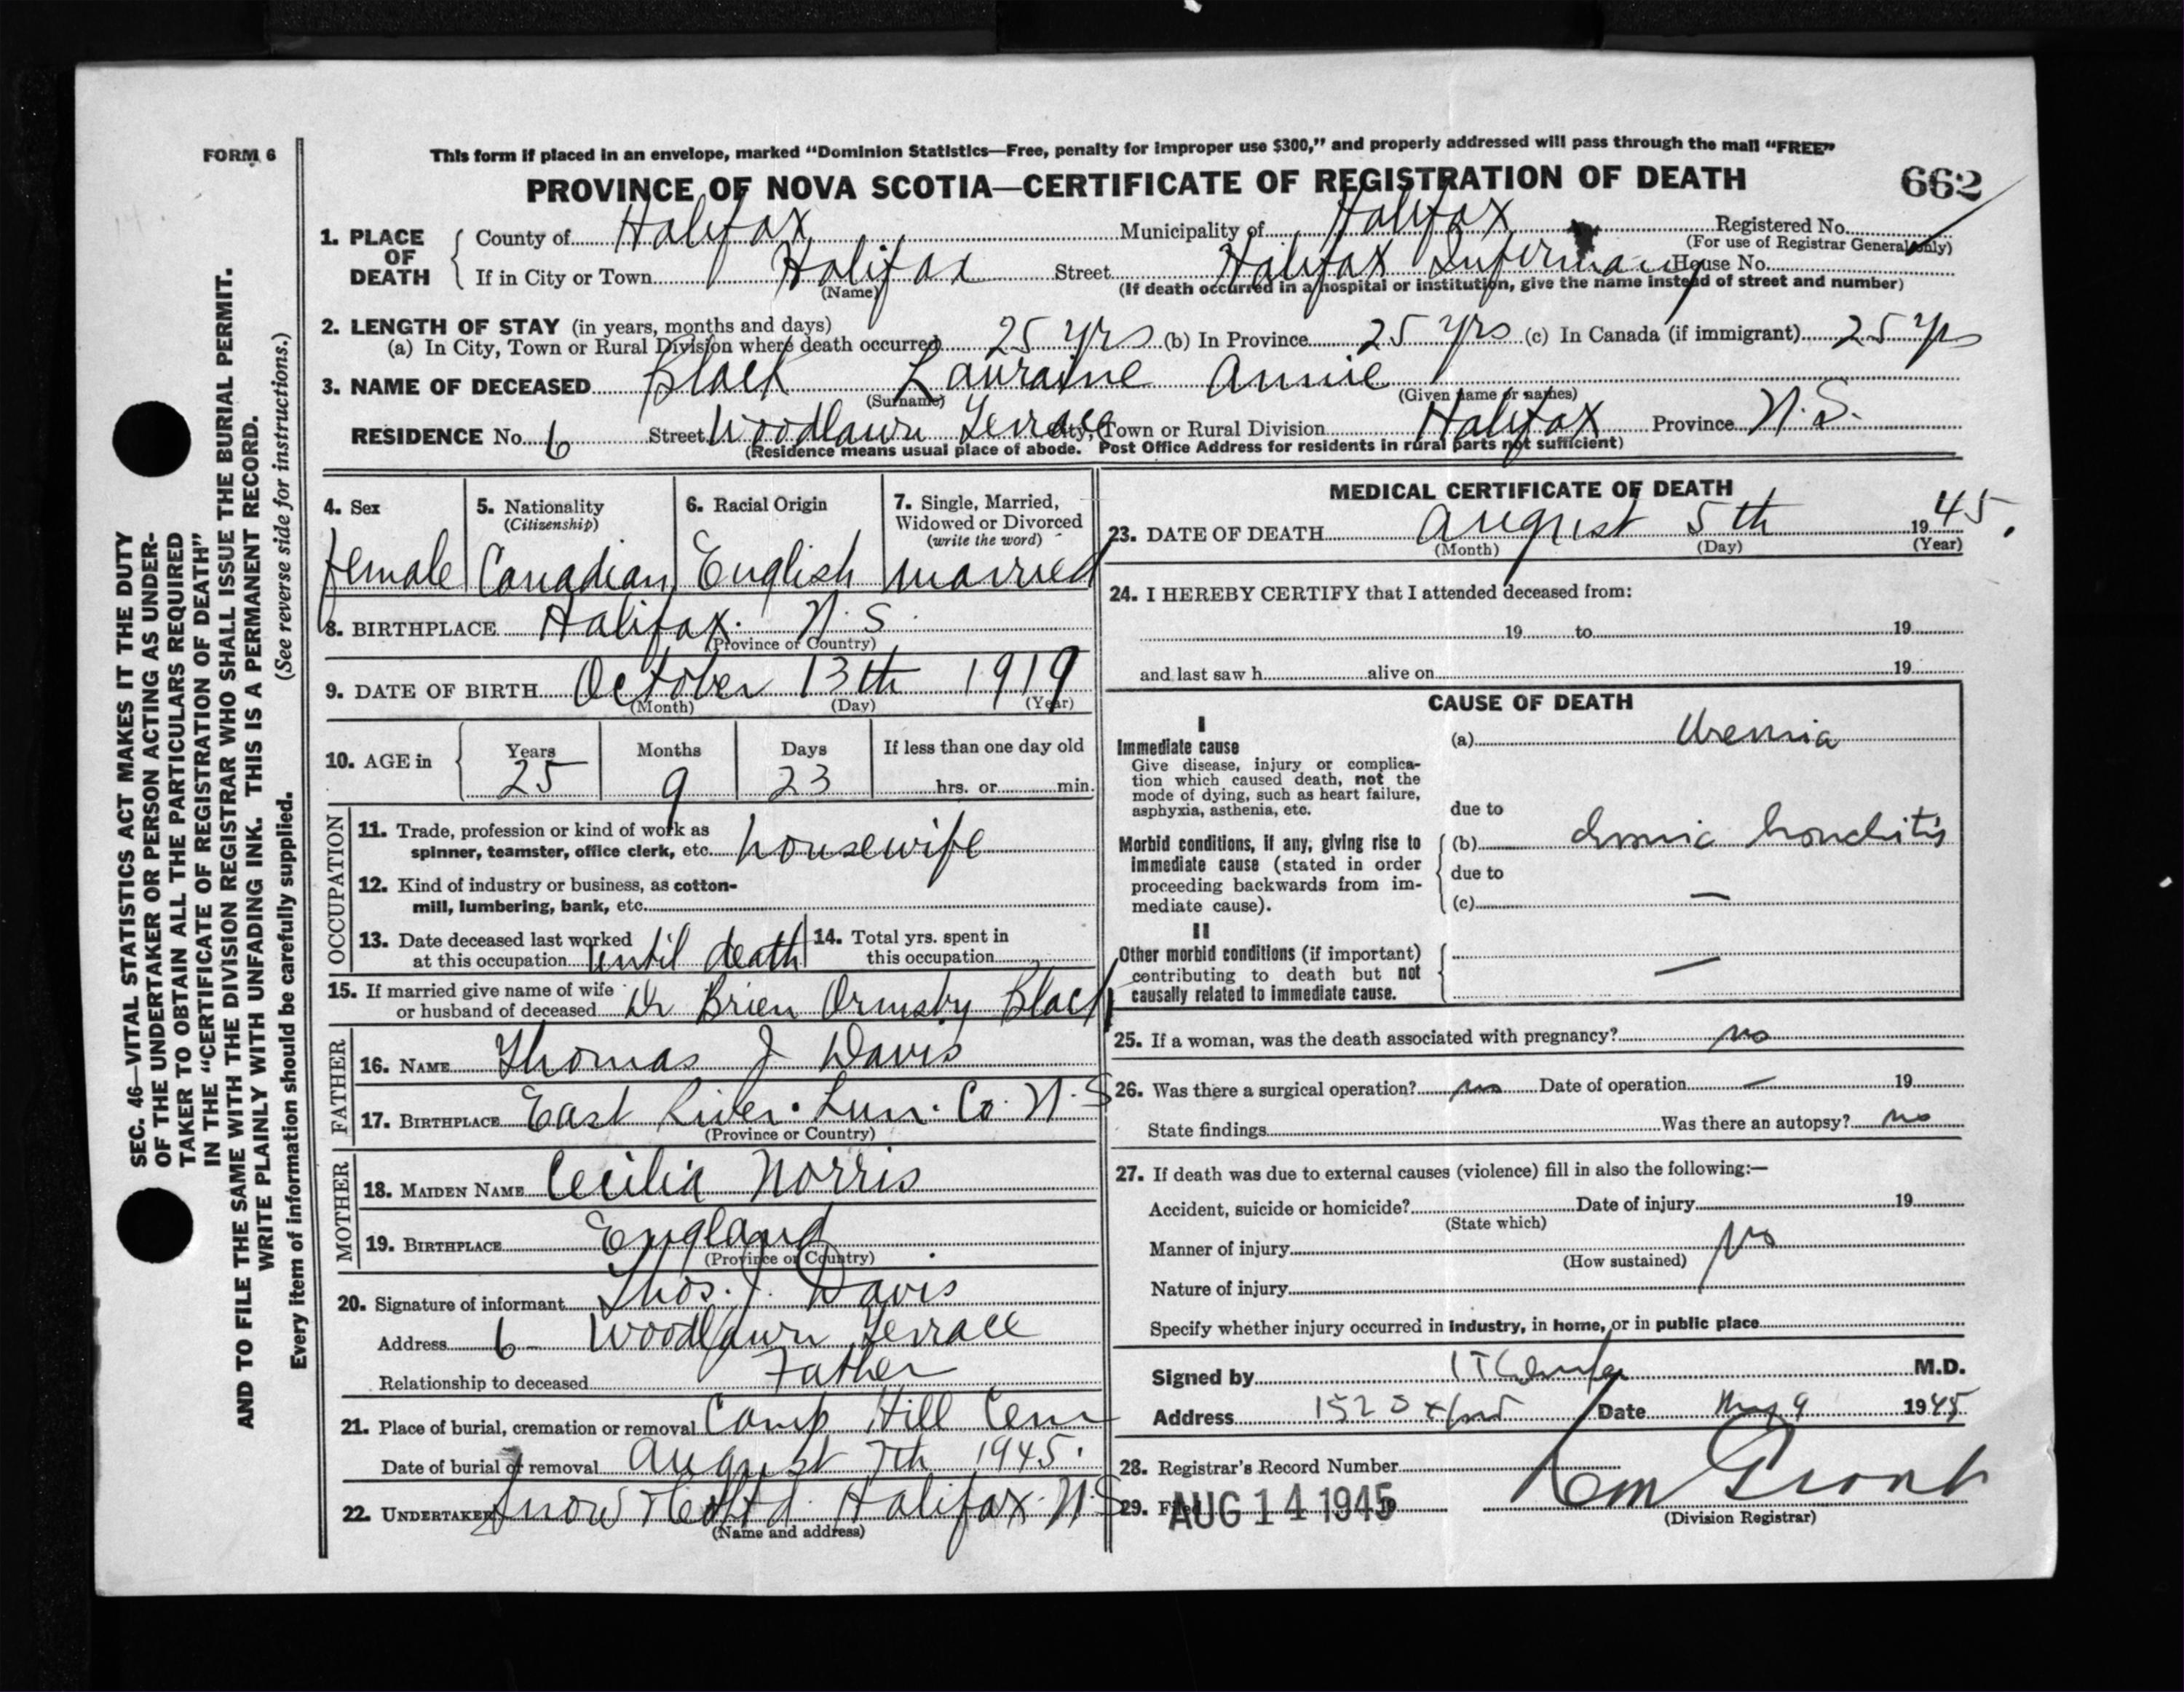 FORM 6
This form if placed in an envelope, marked "Dominion Statistics—Free, penalty for improper use $300," and properly addressed will pass through the mail "FREE"
PROVINCE OF NOVA SCOTIA—CERTIFICATE OF REGISTRATION OF DEATH
662
1. PLACE OF DEATH
County of Halifax Municipality of Halifax Registered No.
(For use of Registrar General only)
If in City or Town Halifax Street Halifax Infirmary House No.
(Name) (If death occurred in a hospital or institution, give the name instead of street and number)
2. LENGTH OF STAY (in years, months and days)
(a) In City, Town or Rural Division where death occurred 25 yrs (b) In Province 25 yrs (c) In Canada (if immigrant) 25 yrs
3. NAME OF DECEASED Black Lauraine Annie
(Surname) (Given name or names)
RESIDENCE No. 6 Street Woodlawn Terrace City, Town or Rural Division Halifax Province N.S.
(Residence means usual place of abode. Post Office Address for residents in rural parts not sufficient)
4. Sex
female
5. Nationality
(Citizenship)
Canadian
6. Racial Origin
English
7. Single, Married,
Widowed or Divorced
(write the word)
married
8. BIRTHPLACE Halifax. N.S.
(Province or Country)
9. DATE OF BIRTH October 13th 1919
(Month) (Day) (Year)
10. AGE in
Years Months Days If less than one day old
25 9 23 hrs. or min.
OCCUPATION
11. Trade, profession or kind of work as
spinner, teamster, office clerk, etc. housewife
12. Kind of industry or business, as cotton-
mill, lumbering, bank, etc.
13. Date deceased last worked
at this occupation until death
14. Total yrs. spent in
this occupation
15. If married give name of wife
or husband of deceased Dr Brien Ormsby Black
FATHER
16. NAME Thomas J Davis
17. BIRTHPLACE East River. Lun. Co. N.S
(Province or Country)
MOTHER
18. MAIDEN NAME Cecilia Norris
19. BIRTHPLACE England
(Province or Country)
20. Signature of informant Thos. J. Davis
Address 6 Woodlawn Terrace
Relationship to deceased Father
21. Place of burial, cremation or removal Camp Hill Cem
Date of burial or removal August 7th 1945.
22. UNDERTAKER Snow & Co Ltd. Halifax. N.S
(Name and address)
MEDICAL CERTIFICATE OF DEATH
23. DATE OF DEATH August 5th 1945.
(Month) (Day) (Year)
24. I HEREBY CERTIFY that I attended deceased from:
19 to 19
and last saw h alive on 19
CAUSE OF DEATH
I
Immediate cause
Give disease, injury or complica-
tion which caused death, not the
mode of dying, such as heart failure,
asphyxia, asthenia, etc.
(a) Uremia
due to
Morbid conditions, if any, giving rise to
immediate cause (stated in order
proceeding backwards from im-
mediate cause).
(b)
due to
(c) —
II
Other morbid conditions (if important)
contributing to death but not
causally related to immediate cause.
—
25. If a woman, was the death associated with pregnancy? no
26. Was there a surgical operation? no Date of operation — 19
State findings Was there an autopsy? no
27. If death was due to external causes (violence) fill in also the following:—
Accident, suicide or homicide? Date of injury 19
(State which)
Manner of injury No
(How sustained)
Nature of injury
Specify whether injury occurred in industry, in home, or in public place
Signed by M.D.
Address 152 Oxford Date 9 1945
28. Registrar's Record Number
29. Filed AUG 14 1945 19
Grant
(Division Registrar)
SEC. 46—VITAL STATISTICS ACT MAKES IT THE DUTY
OF THE UNDERTAKER OR PERSON ACTING AS UNDER-
TAKER TO OBTAIN ALL THE PARTICULARS REQUIRED
IN THE "CERTIFICATE OF REGISTRATION OF DEATH"
AND TO FILE THE SAME WITH THE DIVISION REGISTRAR WHO SHALL ISSUE THE BURIAL PERMIT.
WRITE PLAINLY WITH UNFADING INK. THIS IS A PERMANENT RECORD.
Every item of information should be carefully supplied. (See reverse side for instructions.)